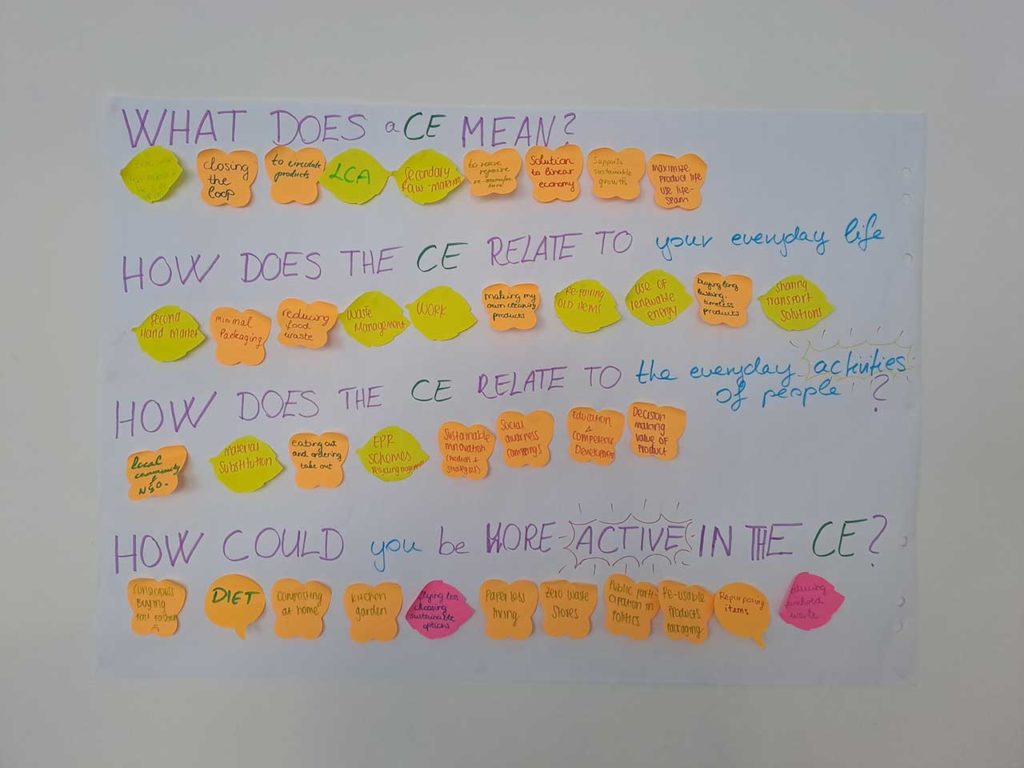 WHAT DOES a CE MEAN?
closing
the
loop
to circulate
products
LCA
Secondary
to reuse
repair
Solution
to linear
economy
Supports
sustainable
growth
maximize
product life
life-
span
HOW DOES THE CE RELATE TO your everyday life
Second
Hand Market
minimal
Packaging
reducing
food
waste
Waste
Management
WORK
making my
own cleaning
products
Repairing
OLD items
USE OF
renewable
energy
buying long
lasting,
timeless
products
sharing
transport
solutions
HOW DOES THE CE RELATE TO the everyday activities
of people ?
local
community
NGO-
Material
Substitution
eating out
and ordering
take out
EPR
SCHEMES
Sustainable
innovation
Social
awareness
campaings
Education
&
Competence
Development
Decision
making
value of
Product
HOW COULD you be MORE ACTIVE IN THE CE?
conscious
buying
DIET
composting
at home
kitchen
garden
flying less
choosing
sustainable
options
Paperless
living
Zero waste
stores
Public parti-
cipation in
Politics
Re-usable
Products
Packaging
Repurposing
items
waste